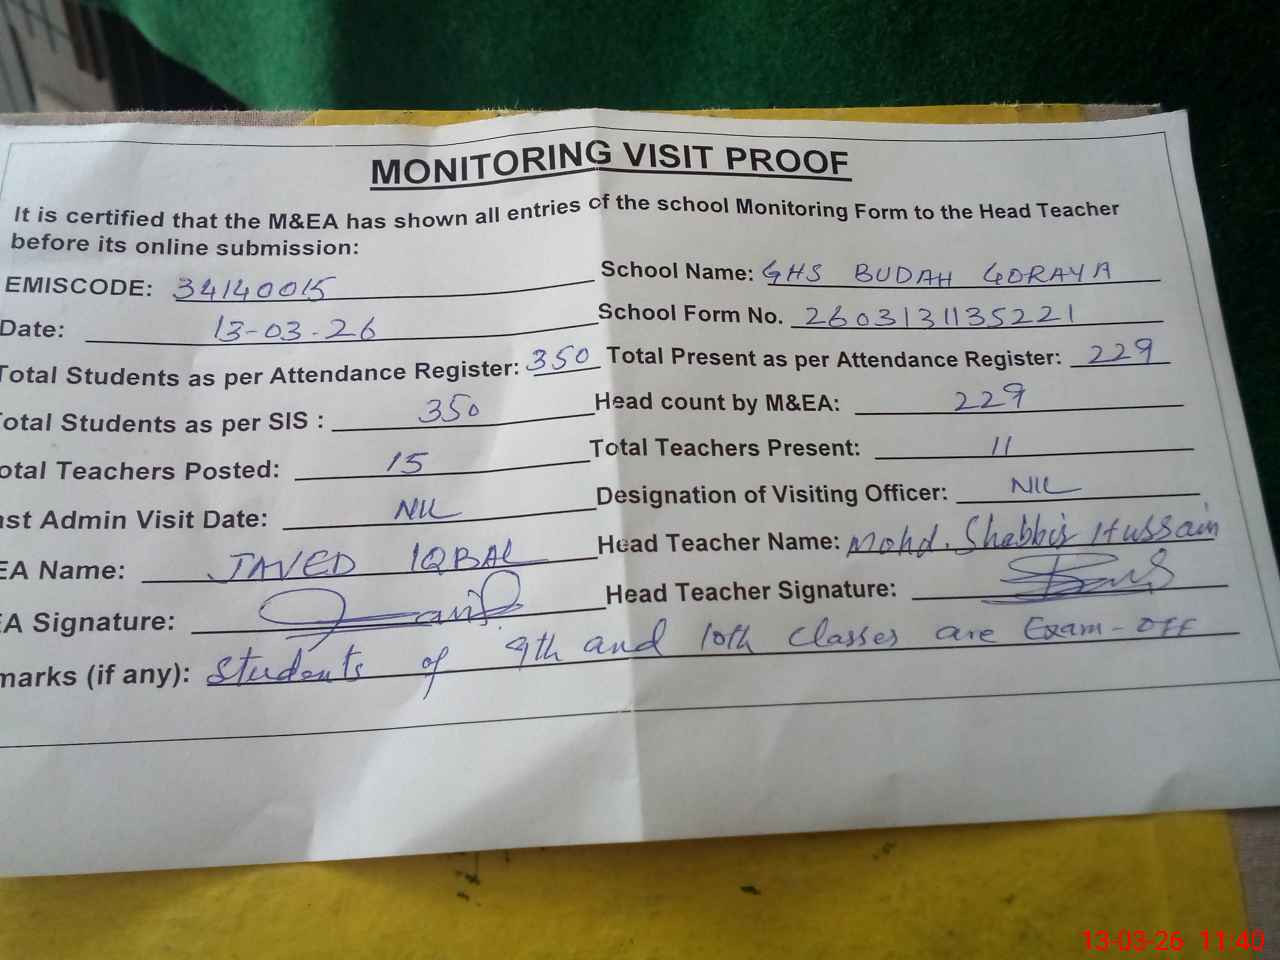 MONITORING VISIT PROOF
It is certified that the M&EA has shown all entries of the school Monitoring Form to the Head Teacher
before its online submission:
EMISCODE: 34140015 School Name: GHS BUDAH GORAYA
Date: 13-03-26 School Form No. 2603131135221
Total Students as per Attendance Register: 350 Total Present as per Attendance Register: 229
otal Students as per SIS : 350 Head count by M&EA: 229
otal Teachers Posted: 15 Total Teachers Present: 11
ast Admin Visit Date: NIL Designation of Visiting Officer: NIL
EA Name: JAVED IQBAL Head Teacher Name: Mohd. Shabbir Hussain
EA Signature: Head Teacher Signature:
marks (if any): Students of 9th and 10th classes are Exam-OFF
13-03-26 11:40